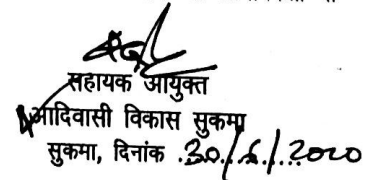 सहायक आयुक्त
आदिवासी विकास सुकमा
सुकमा, दिनांक .30/6/2020